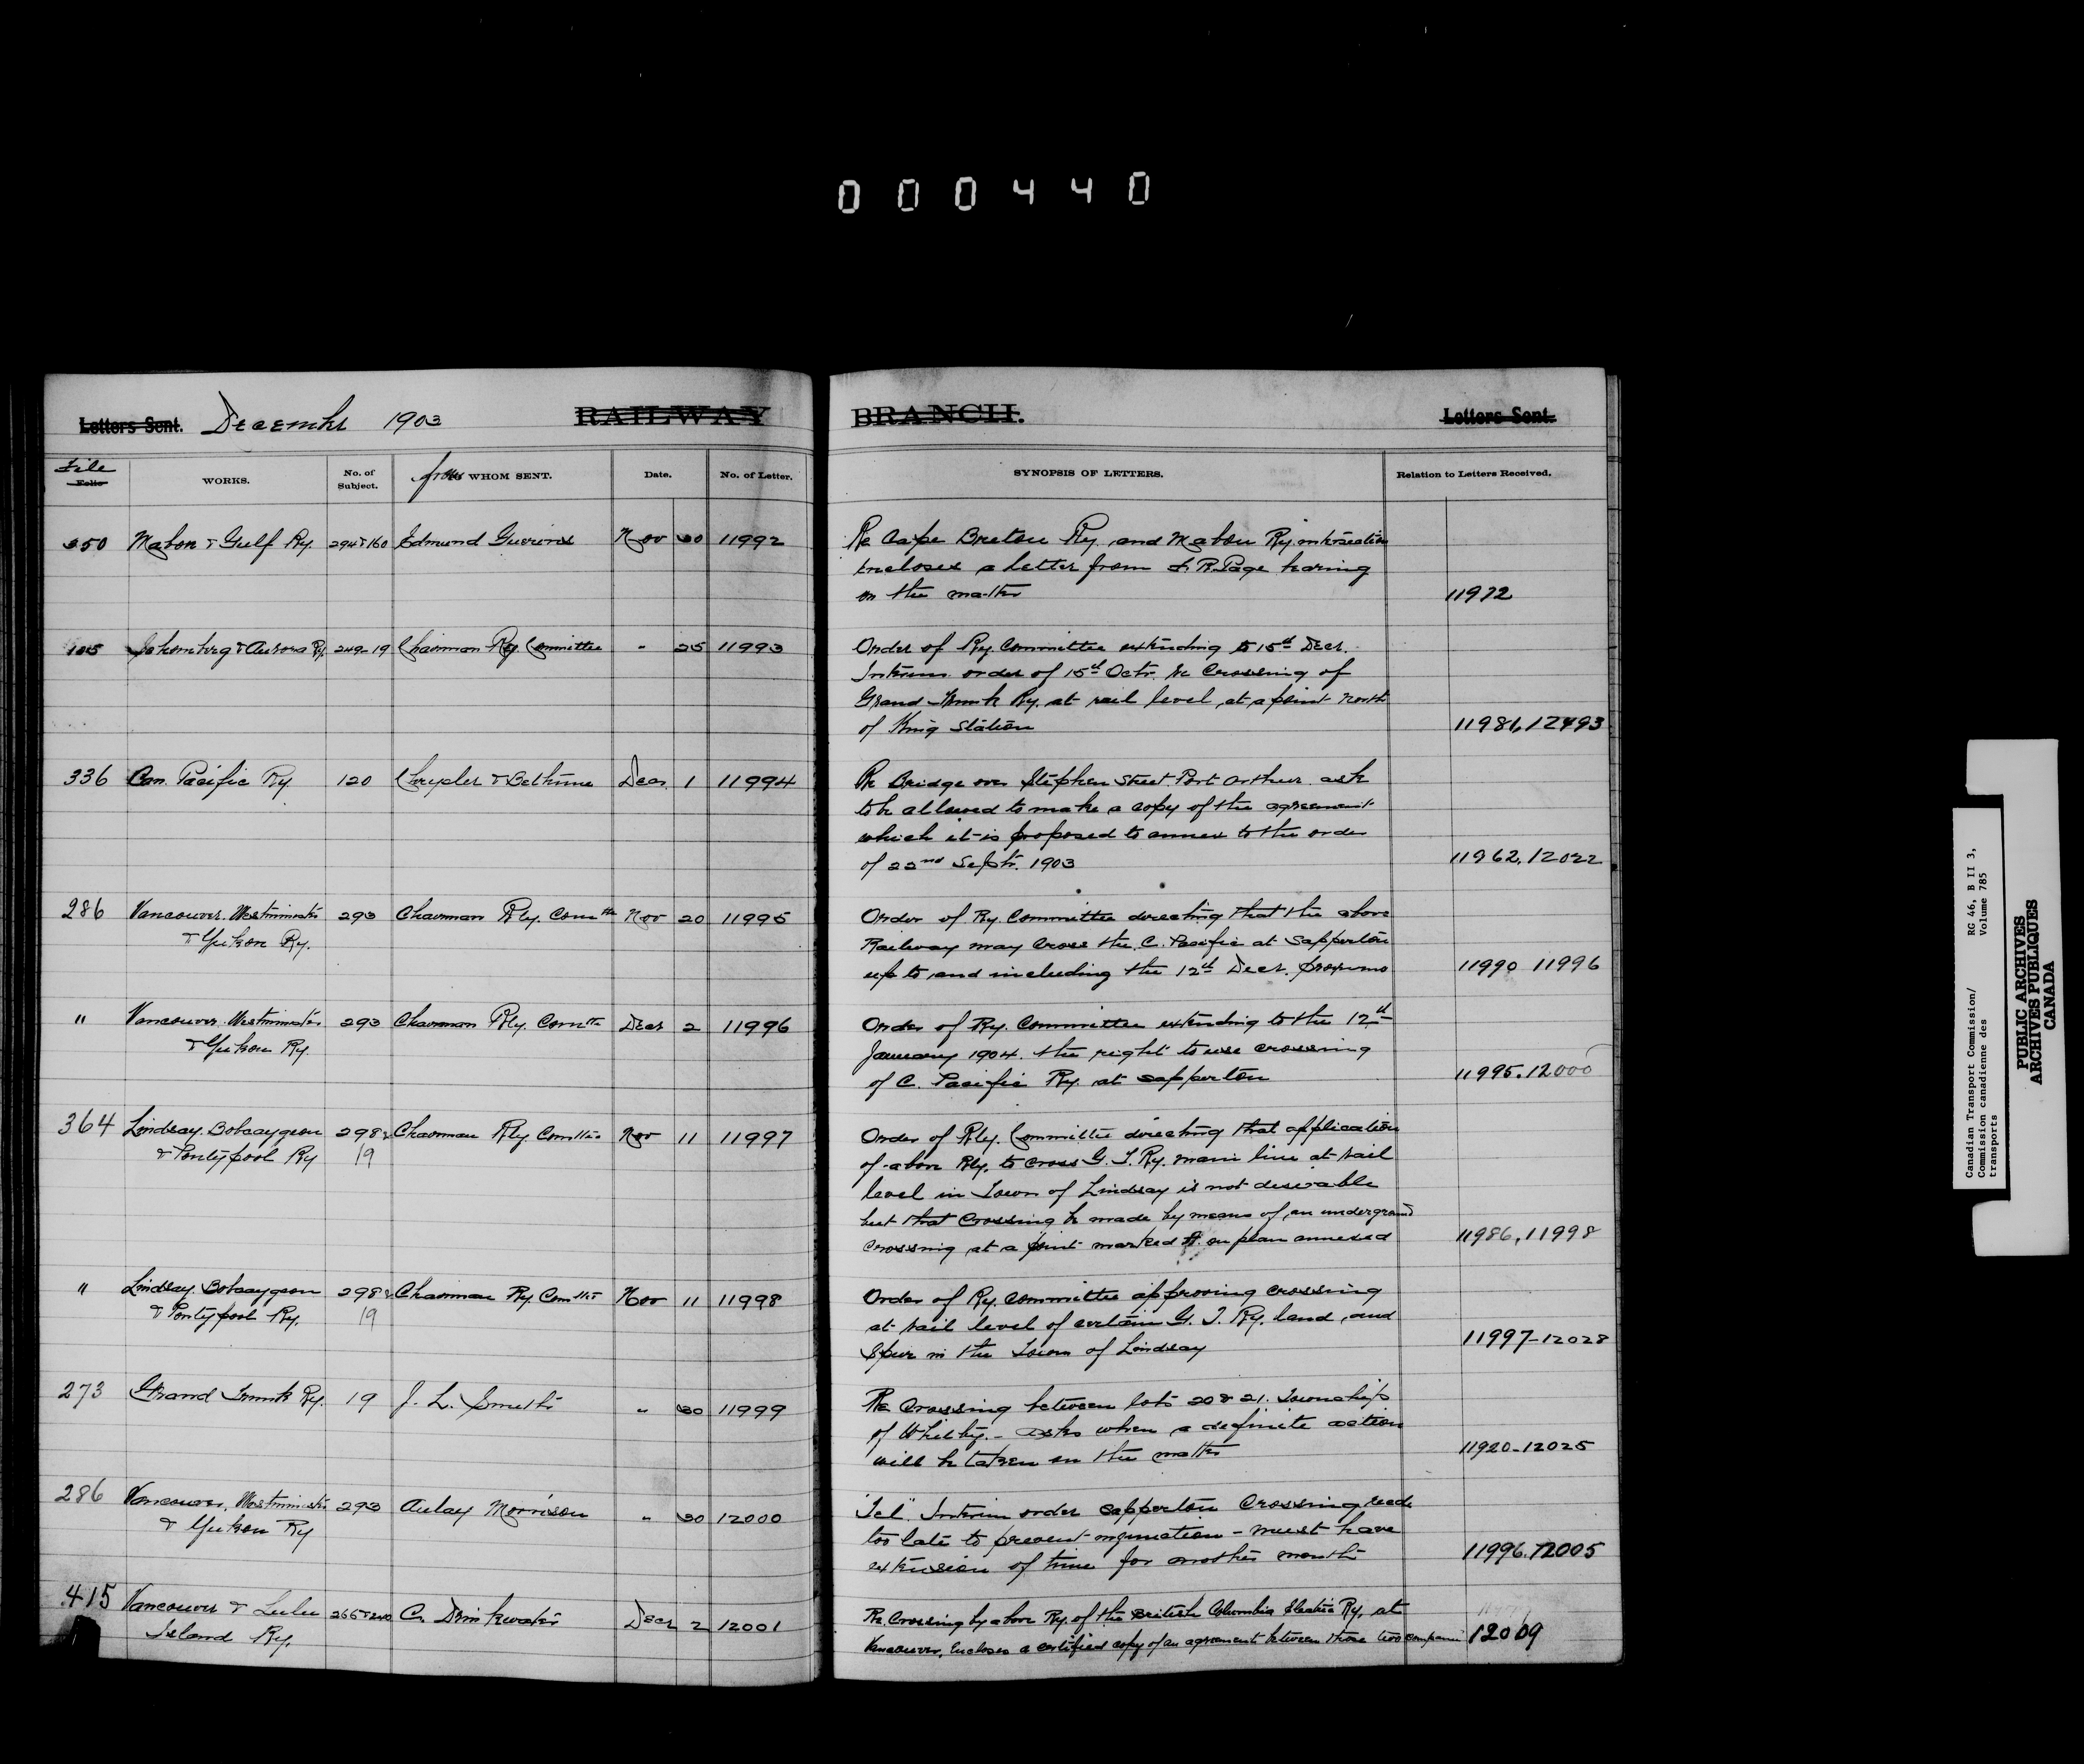 000440
Letters Sent. Decembr 1903 RAILWAY BRANCH. Letters Sent.
File Folio WORKS. No. of Subject. from WHOM SENT. Date. No. of Letter. SYNOPSIS OF LETTERS. Relation to Letters Received.
350 Mabou & Gulf Ry. 294 & 160 Edmund Nov 30 11992 Re Cape Breton Ry. and Mabou Ry. intersection
Encloses a letter from R Page bearing
on the matter 11972
105 Schomberg & Aurora Ry. 249-19 Chairman Ry Committee " 25 11993 Order of Ry. Committee extending to 15th Decr.
Interim order of 15th Octr. re Crossing of
Grand Trunk Ry. at rail level, at a point north
of King Station 11981, 12493
336 Can. Pacific Ry. 120 Chrysler & Bethune Decr. 1 11994 Re Bridge over Stephen Street Port Arthur ask
to be allowed to make a copy of the agreement
which it is proposed to annex to the order
of 22nd Septr. 1903 11962, 12022
286 Vancouver Westminster 293 Chairman Rly. Comtte Nov 20 11995 Order of Ry. Committee directing that the above
& Yukon Ry. Railway may cross the C. Pacific at Sapperton
up to and including the 12th Decr. proximo 11990 11996
" Vancouver Westminster 293 Chairman Rly. Comtte Decr 2 11996 Order of Ry. Committee extending to the 12th
& Yukon Ry. January 1904. the right to use crossing
of C. Pacific Ry. at Sapperton 11995. 12000
364 Lindsay Bobcaygeon 298 & Chairman Rly Comttee Nov 11 11997 Order of Rly. Committee directing that application
& Pontypool Ry 19 of above Rly. to cross G. T. Ry. main line at rail
level in Town of Lindsay is not desirable
but that Crossing be made by means of an underground
crossing at a point marked A. on plan annexed 11986, 11998
" Lindsay Bobcaygeon 298 & Chairman Ry. Comttee Nov 11 11998 Order of Ry. Committee approving crossing
& Pontypool Ry. 19 at rail level of certain G. T. Ry. land, and
Spur in the Town of Lindsay 11997-12028
273 Grand Trunk Ry. 19 J. L. Smith " 30 11999 Re Crossing between lots 20 & 21. Township
of Whitby. - Asks when a definite action
will be taken in the matter 11920-12025
286 Vancouver, Westminster 293 Aulay Morrison " 30 12000 "Tel" Interim order Sapperton Crossing recd.
& Yukon Ry too late to prevent injunction - must have
extension of time for another month 11996. 12005
415 Vancouver & Lulu 266 & 240 C. Drinkwater Decr 2 12001 Re. Crossing by above Ry. of the British Columbia Electric Ry. at
Island Ry. Vancouver, Encloses a certified copy of an agreement between those two companies 12009
Canadian Transport Commission/ RG 46, B II 3,
Commission canadienne des Volume 785
transports
PUBLIC ARCHIVES
ARCHIVES PUBLIQUES
CANADA